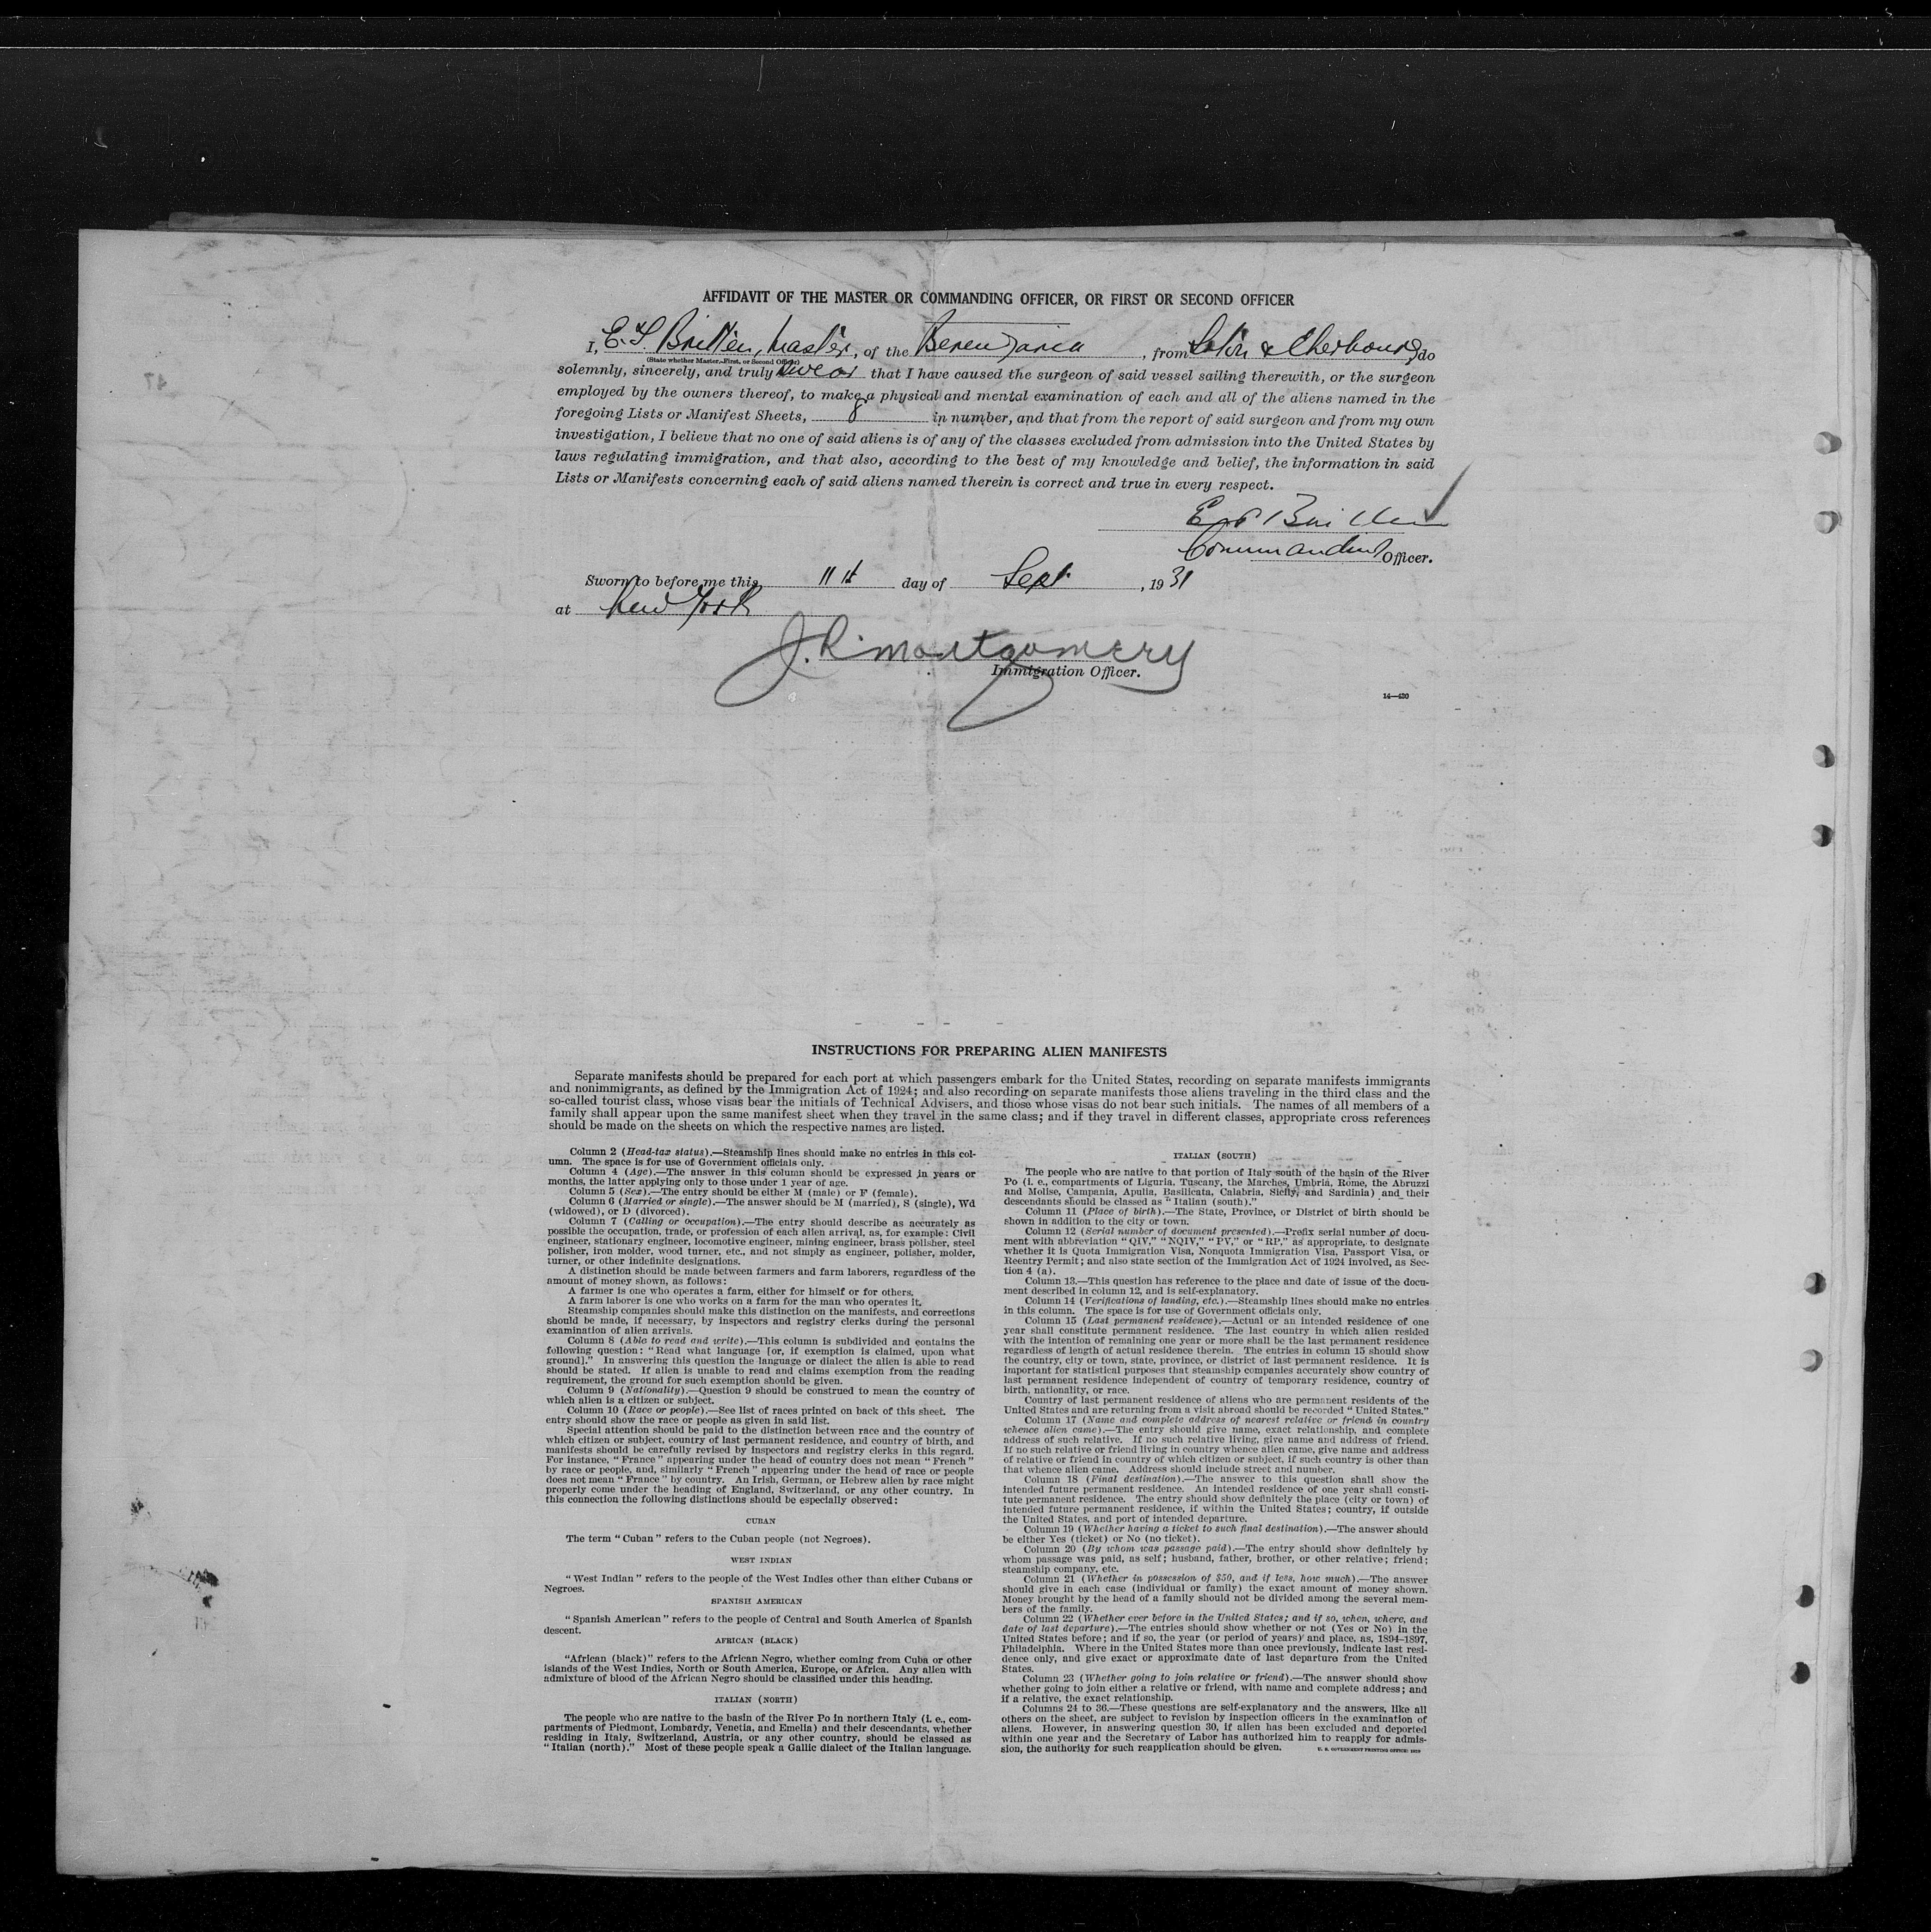 AFFIDAVIT OF THE MASTER OR COMMANDING OFFICER, OR FIRST OR SECOND OFFICER
I, E.T. Britten, Master, of the Berengaria, from S'ton & Cherbourg, do
(State whether Master, First, or Second Officer)
solemnly, sincerely, and truly swear that I have caused the surgeon of said vessel sailing therewith, or the surgeon
employed by the owners thereof, to make a physical and mental examination of each and all of the aliens named in the
foregoing Lists or Manifest Sheets, 8 in number, and that from the report of said surgeon and from my own
investigation, I believe that no one of said aliens is of any of the classes excluded from admission into the United States by
laws regulating immigration, and that also, according to the best of my knowledge and belief, the information in said
Lists or Manifests concerning each of said aliens named therein is correct and true in every respect.
Britten
Commanding Officer.
Sworn to before me this 11th day of Sept, 1931
at New York
J. R. Montgomery
Immigration Officer.
14—430
INSTRUCTIONS FOR PREPARING ALIEN MANIFESTS
Separate manifests should be prepared for each port at which passengers embark for the United States, recording on separate manifests immigrants
and nonimmigrants, as defined by the Immigration Act of 1924; and also recording on separate manifests those aliens traveling in the third class and the
so-called tourist class, whose visas bear the initials of Technical Advisers, and those whose visas do not bear such initials. The names of all members of a
family shall appear upon the same manifest sheet when they travel in the same class; and if they travel in different classes, appropriate cross references
should be made on the sheets on which the respective names are listed.
Column 2 (Head-tax status).—Steamship lines should make no entries in this col-
umn. The space is for use of Government officials only.
Column 4 (Age).—The answer in this column should be expressed in years or
months, the latter applying only to those under 1 year of age.
Column 5 (Sex).—The entry should be either M (male) or F (female).
Column 6 (Married or single).—The answer should be M (married), S (single), Wd
(widowed), or D (divorced).
Column 7 (Calling or occupation).—The entry should describe as accurately as
possible the occupation, trade, or profession of each alien arrival, as, for example: Civil
engineer, stationary engineer, locomotive engineer, mining engineer, brass polisher, steel
polisher, iron molder, wood turner, etc., and not simply as engineer, polisher, molder,
turner, or other indefinite designations.
A distinction should be made between farmers and farm laborers, regardless of the
amount of money shown, as follows:
A farmer is one who operates a farm, either for himself or for others.
A farm laborer is one who works on a farm for the man who operates it.
Steamship companies should make this distinction on the manifests, and corrections
should be made, if necessary, by inspectors and registry clerks during the personal
examination of alien arrivals.
Column 8 (Able to read and write).—This column is subdivided and contains the
following question: "Read what language [or, if exemption is claimed, upon what
ground]." In answering this question the language or dialect the alien is able to read
should be stated. If alien is unable to read and claims exemption from the reading
requirement, the ground for such exemption should be given.
Column 9 (Nationality).—Question 9 should be construed to mean the country of
which alien is a citizen or subject.
Column 10 (Race or people).—See list of races printed on back of this sheet. The
entry should show the race or people as given in said list.
Special attention should be paid to the distinction between race and the country of
which citizen or subject, country of last permanent residence, and country of birth, and
manifests should be carefully revised by inspectors and registry clerks in this regard.
For instance, "France" appearing under the head of country does not mean "French"
by race or people, and, similarly "French" appearing under the head of race or people
does not mean "France" by country. An Irish, German, or Hebrew alien by race might
properly come under the heading of England, Switzerland, or any other country. In
this connection the following distinctions should be especially observed:
CUBAN
The term "Cuban" refers to the Cuban people (not Negroes).
WEST INDIAN
"West Indian" refers to the people of the West Indies other than either Cubans or
Negroes.
SPANISH AMERICAN
"Spanish American" refers to the people of Central and South America of Spanish
descent.
AFRICAN (BLACK)
"African (black)" refers to the African Negro, whether coming from Cuba or other
islands of the West Indies, North or South America, Europe, or Africa. Any alien with
admixture of blood of the African Negro should be classified under this heading.
ITALIAN (NORTH)
The people who are native to the basin of the River Po in northern Italy (i. e., com-
partments of Piedmont, Lombardy, Venetia, and Emelia) and their descendants, whether
residing in Italy, Switzerland, Austria, or any other country, should be classed as
"Italian (north)." Most of these people speak a Gallic dialect of the Italian language.
ITALIAN (SOUTH)
The people who are native to that portion of Italy south of the basin of the River
Po (i. e., compartments of Liguria, Tuscany, the Marches, Umbria, Rome, the Abruzzi
and Molise, Campania, Apulia, Basilicata, Calabria, Sicily, and Sardinia) and their
descendants should be classed as "Italian (south)."
Column 11 (Place of birth).—The State, Province, or District of birth should be
shown in addition to the city or town.
Column 12 (Serial number of document presented).—Prefix serial number of docu-
ment with abbreviation "QIV," "NQIV," "PV," or "RP," as appropriate, to designate
whether it is Quota Immigration Visa, Nonquota Immigration Visa, Passport Visa, or
Reentry Permit; and also state section of the Immigration Act of 1924 involved, as Sec-
tion 4 (a).
Column 13.—This question has reference to the place and date of issue of the docu-
ment described in column 12, and is self-explanatory.
Column 14 (Verifications of landing, etc.).—Steamship lines should make no entries
in this column. The space is for use of Government officials only.
Column 15 (Last permanent residence).—Actual or an intended residence of one
year shall constitute permanent residence. The last country in which alien resided
with the intention of remaining one year or more shall be the last permanent residence
regardless of length of actual residence therein. The entries in column 15 should show
the country, city or town, state, province, or district of last permanent residence. It is
important for statistical purposes that steamship companies accurately show country of
last permanent residence independent of country of temporary residence, country of
birth, nationality, or race.
Country of last permanent residence of aliens who are permanent residents of the
United States and are returning from a visit abroad should be recorded "United States."
Column 17 (Name and complete address of nearest relative or friend in country
whence alien came).—The entry should give name, exact relationship, and complete
address of such relative. If no such relative living, give name and address of friend.
If no such relative or friend living in country whence alien came, give name and address
of relative or friend in country of which citizen or subject, if such country is other than
that whence alien came. Address should include street and number.
Column 18 (Final destination).—The answer to this question shall show the
intended future permanent residence. An intended residence of one year shall consti-
tute permanent residence. The entry should show definitely the place (city or town) of
intended future permanent residence, if within the United States; country, if outside
the United States, and port of intended departure.
Column 19 (Whether having a ticket to such final destination).—The answer should
be either Yes (ticket) or No (no ticket).
Column 20 (By whom was passage paid).—The entry should show definitely by
whom passage was paid, as self; husband, father, brother, or other relative; friend;
steamship company, etc.
Column 21 (Whether in possession of $50, and if less, how much).—The answer
should give in each case (individual or family) the exact amount of money shown.
Money brought by the head of a family should not be divided among the several mem-
bers of the family.
Column 22 (Whether ever before in the United States; and if so, when, where, and
date of last departure).—The entries should show whether or not (Yes or No) in the
United States before; and if so, the year (or period of years) and place, as, 1894–1897,
Philadelphia. Where in the United States more than once previously, indicate last resi-
dence only, and give exact or approximate date of last departure from the United
States.
Column 23 (Whether going to join relative or friend).—The answer should show
whether going to join either a relative or friend, with name and complete address; and
if a relative, the exact relationship.
Columns 24 to 36.—These questions are self-explanatory and the answers, like all
others on the sheet, are subject to revision by inspection officers in the examination of
aliens. However, in answering question 30, if alien has been excluded and deported
within one year and the Secretary of Labor has authorized him to reapply for admis-
sion, the authority for such reapplication should be given.
U. S. GOVERNMENT PRINTING OFFICE: